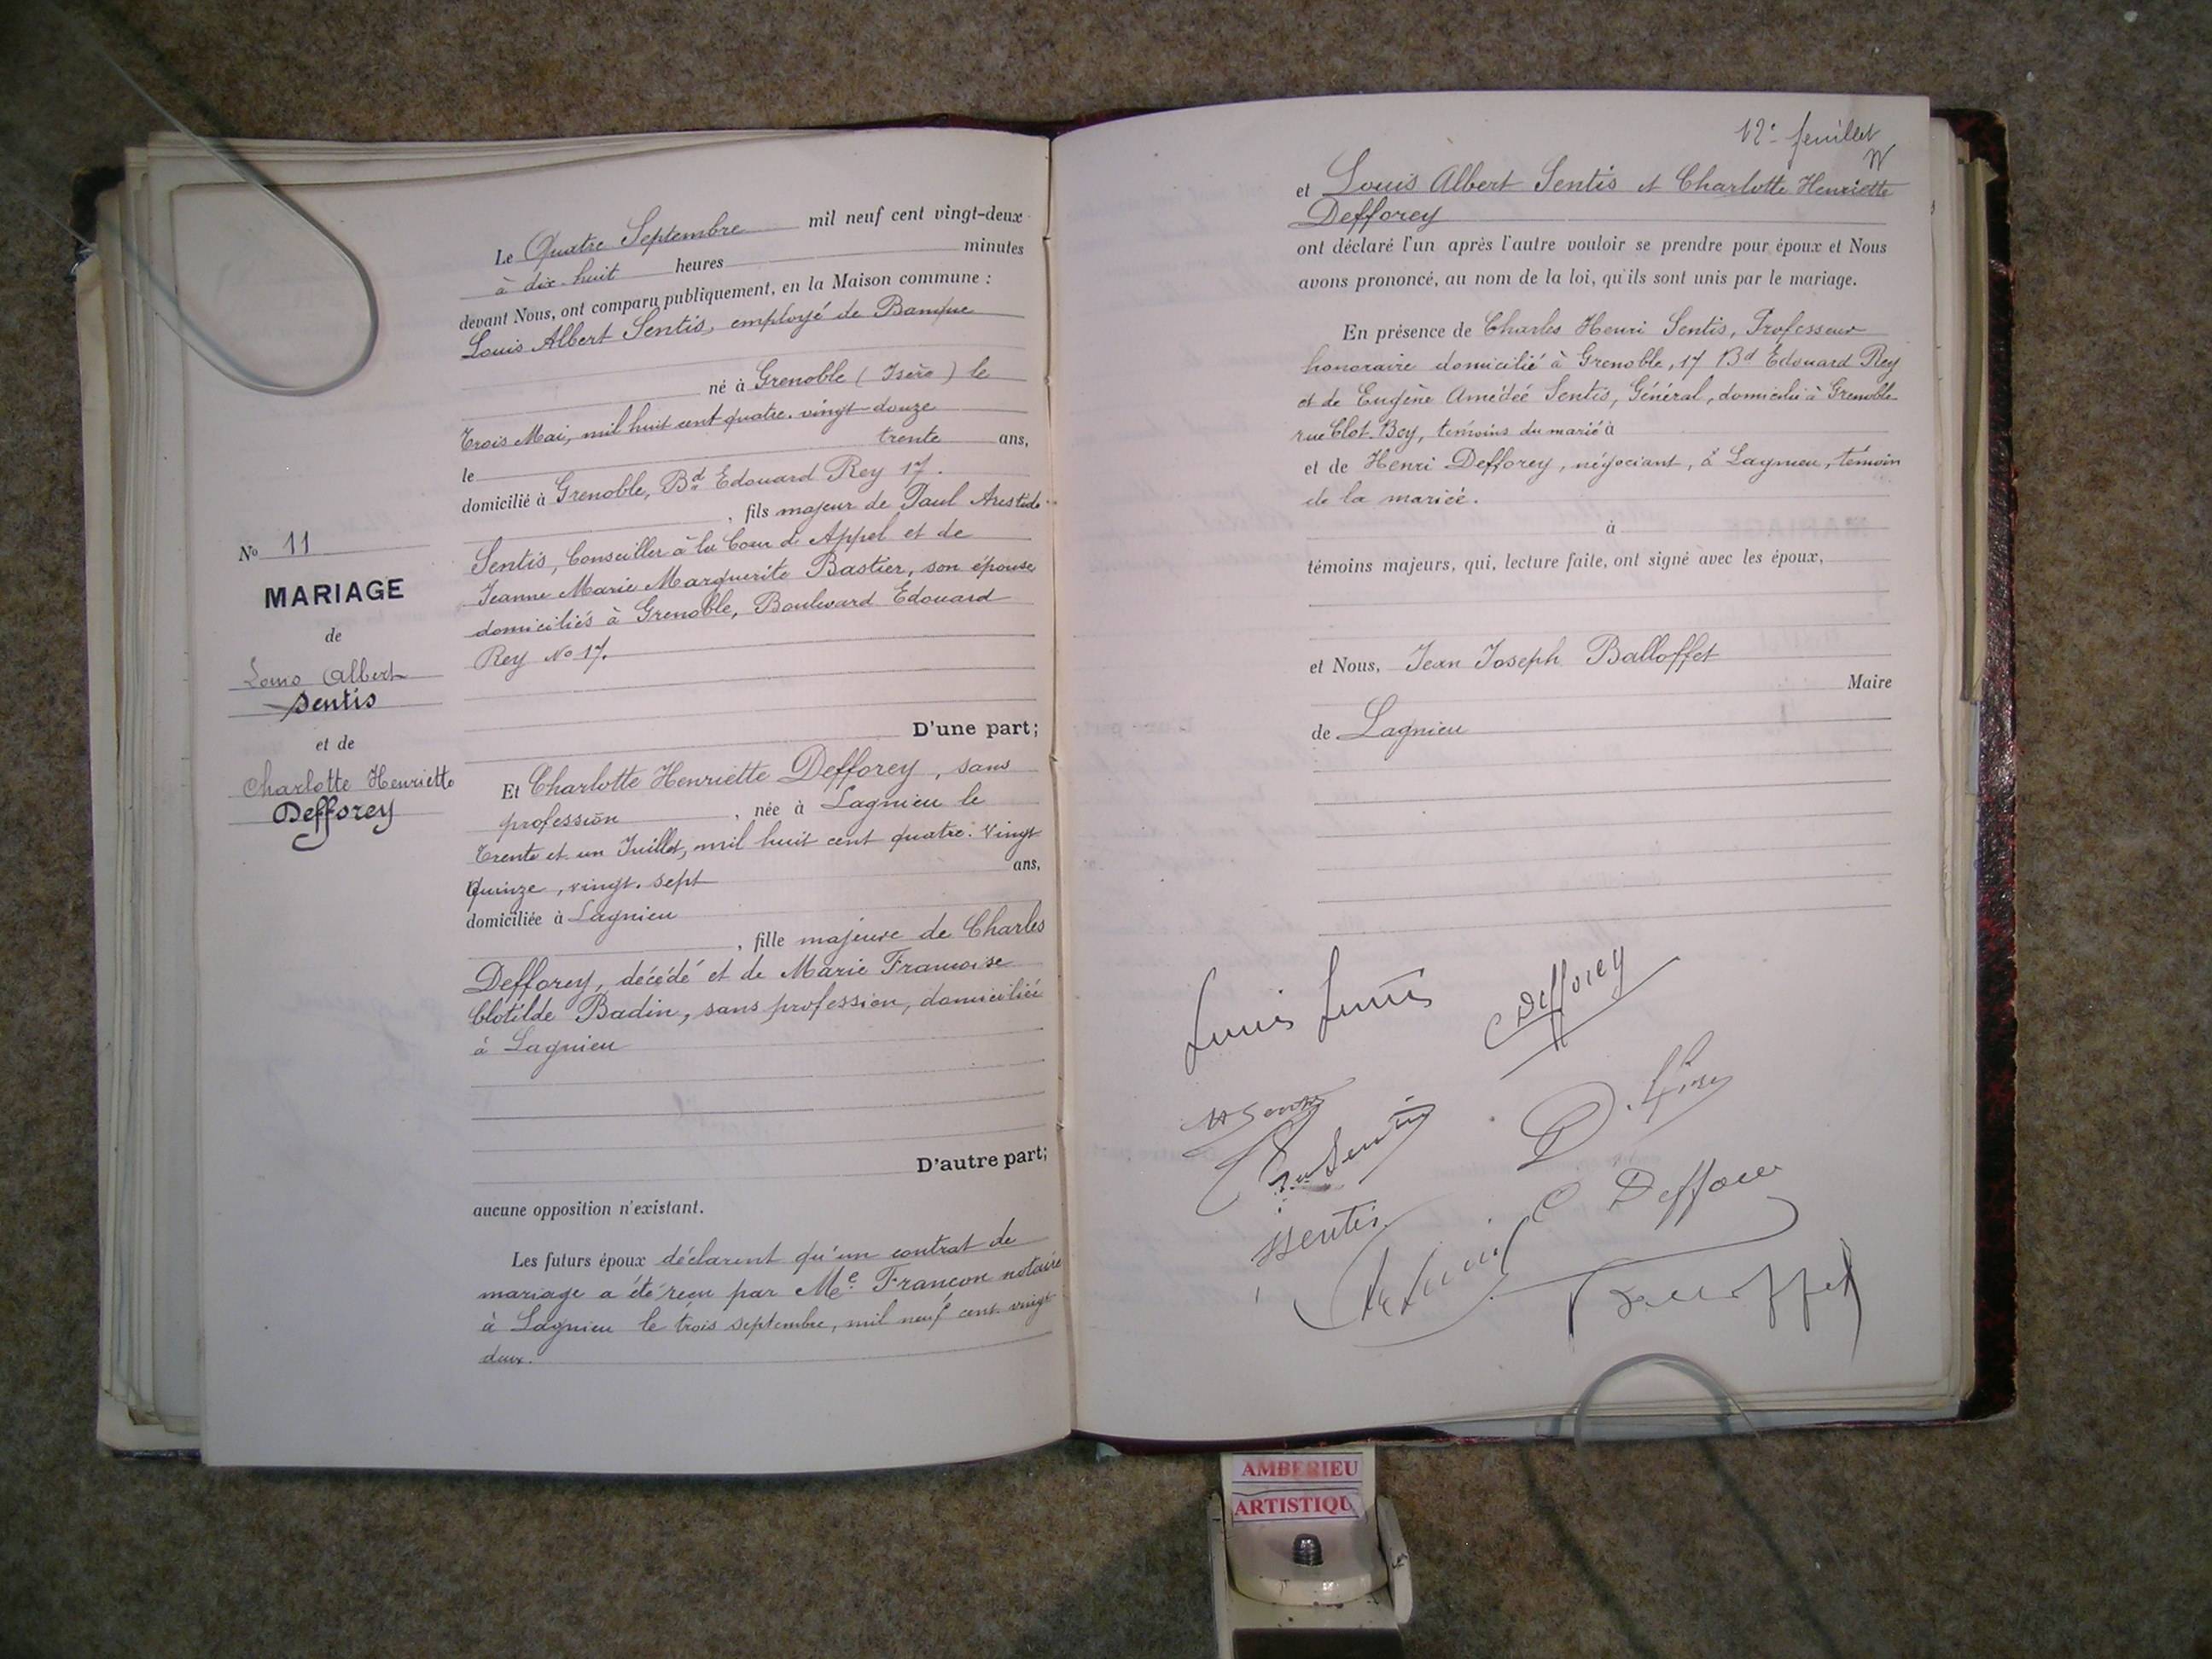 Le Quatre Septembre mil neuf cent vingt-deux
à dix-huit heures minutes
devant Nous, ont comparu publiquement, en la Maison commune :
Louis Albert Sentis, employé de Banque
né à Grenoble (Isère) le
Trois Mai, mil huit cent quatre-vingt-douze
le trente ans,
domicilié à Grenoble, Bd Edouard Rey 17.
, fils majeur de Paul Aristide
Sentis, Conseiller à la Cour d'Appel et de
Jeanne Marie Marguerite Bastier, son épouse
domiciliés à Grenoble, Boulevard Edouard
Rey No 17.
D'une part;
No 11
MARIAGE
de
Louis Albert
Sentis
et de
Charlotte Henriette
Defforey
Et Charlotte Henriette Defforey, sans
profession, née à Lagnieu le
Trente et un Juillet, mil huit cent quatre-vingt
quinze, vingt-sept ans,
domiciliée à Lagnieu
, fille majeure de Charles
Defforey, décédé et de Marie Francoise
Clotilde Badin, sans profession, domiciliée
à Lagnieu
D'autre part;
aucune opposition n'existant.
Les futurs époux déclarent qu'un contrat de
mariage a été reçu par Me Francon notaire
à Lagnieu le trois septembre, mil neuf cent vingt
deux.
12e feuillet
et Louis Albert Sentis et Charlotte Henriette
Defforey
ont déclaré l'un après l'autre vouloir se prendre pour époux et Nous
avons prononcé, au nom de la loi, qu'ils sont unis par le mariage.
En présence de Charles Henri Sentis, Professeur
honoraire domicilié à Grenoble, 17 Bd Edouard Rey
et de Eugène Amédée Sentis, Général, domicilié à Grenoble
rue Clot-Bey, témoins du marié à
et de Henri Defforey, négociant, à Lagnieu, témoin
de la mariée.
à
témoins majeurs, qui, lecture faite, ont signé avec les époux,
et Nous, Jean Joseph Balloffet
Maire
de Lagnieu
Louis Sentis
C Defforey
Sentis
C Defforey
Balloffet
AMBERIEU
ARTISTIQU